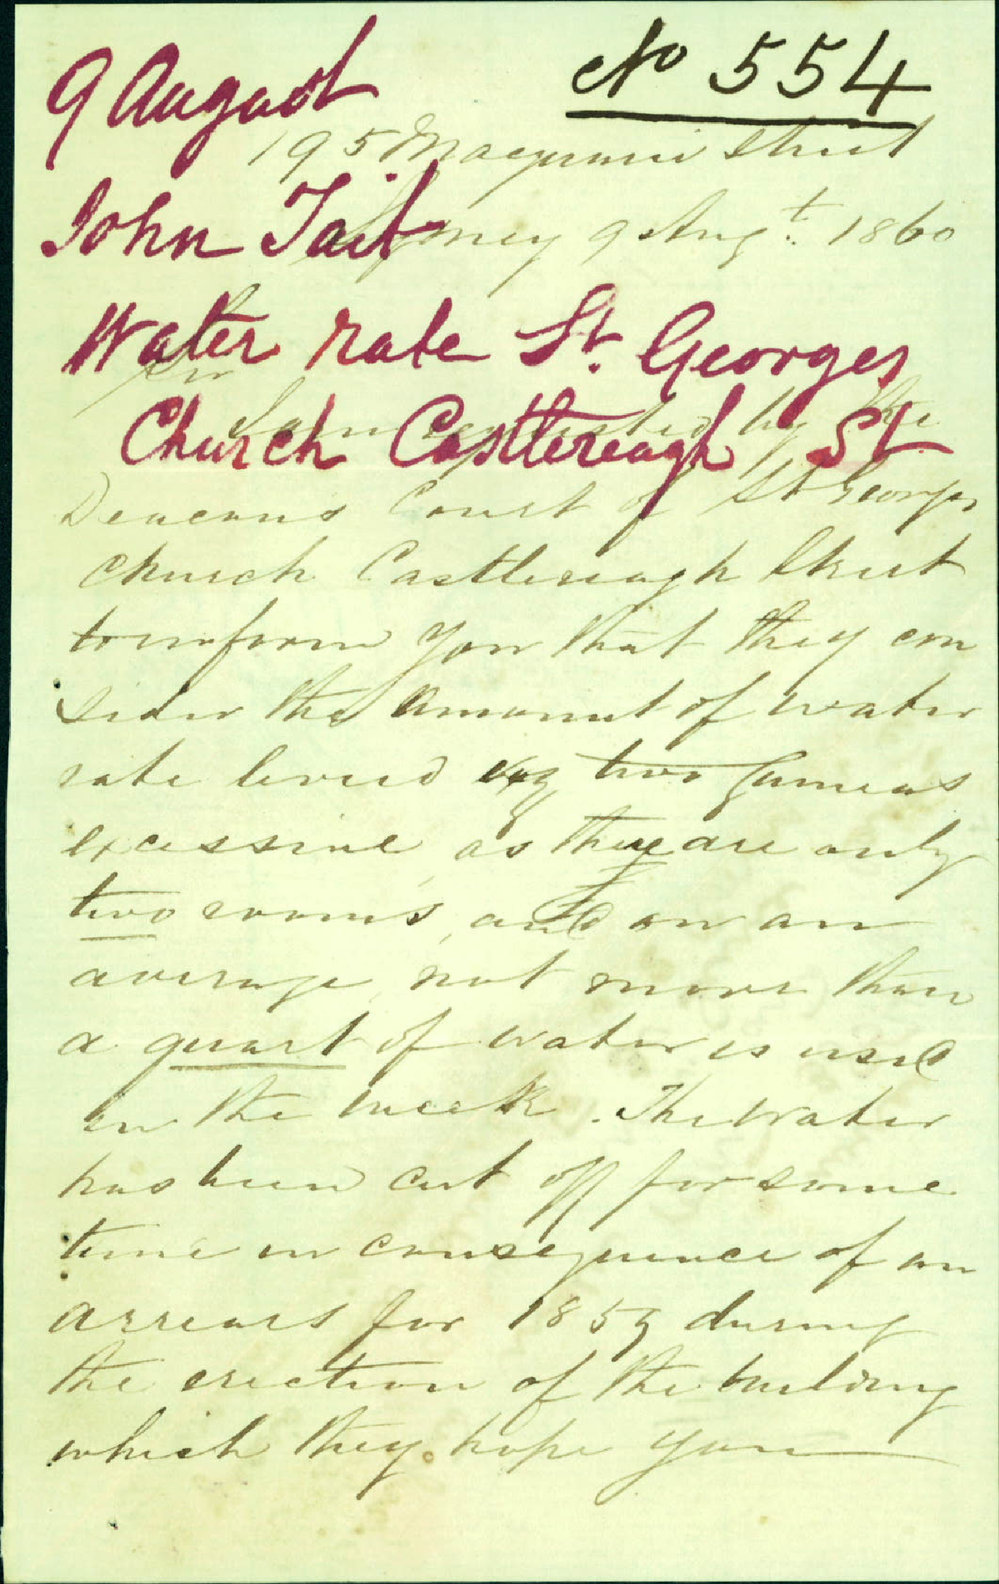 9 August
No 554
195 Macquarie Street
John Tait
Sydney 9 Augt. 1860
Water rate St. Georges
Sir
I am requested by the
Church Castlereagh St
Deacons Court of St Georges
Church Castlereagh Street
to inform you that they con
sider the amount of water
rate levied viz two Guineas
excessive as there are only
two rooms, and on an
average not more than
a quart of water is used
in the week. The water
has been cut off for some
time in consequence of an
arrears for 1859 during
the erection of the building
which they hope you